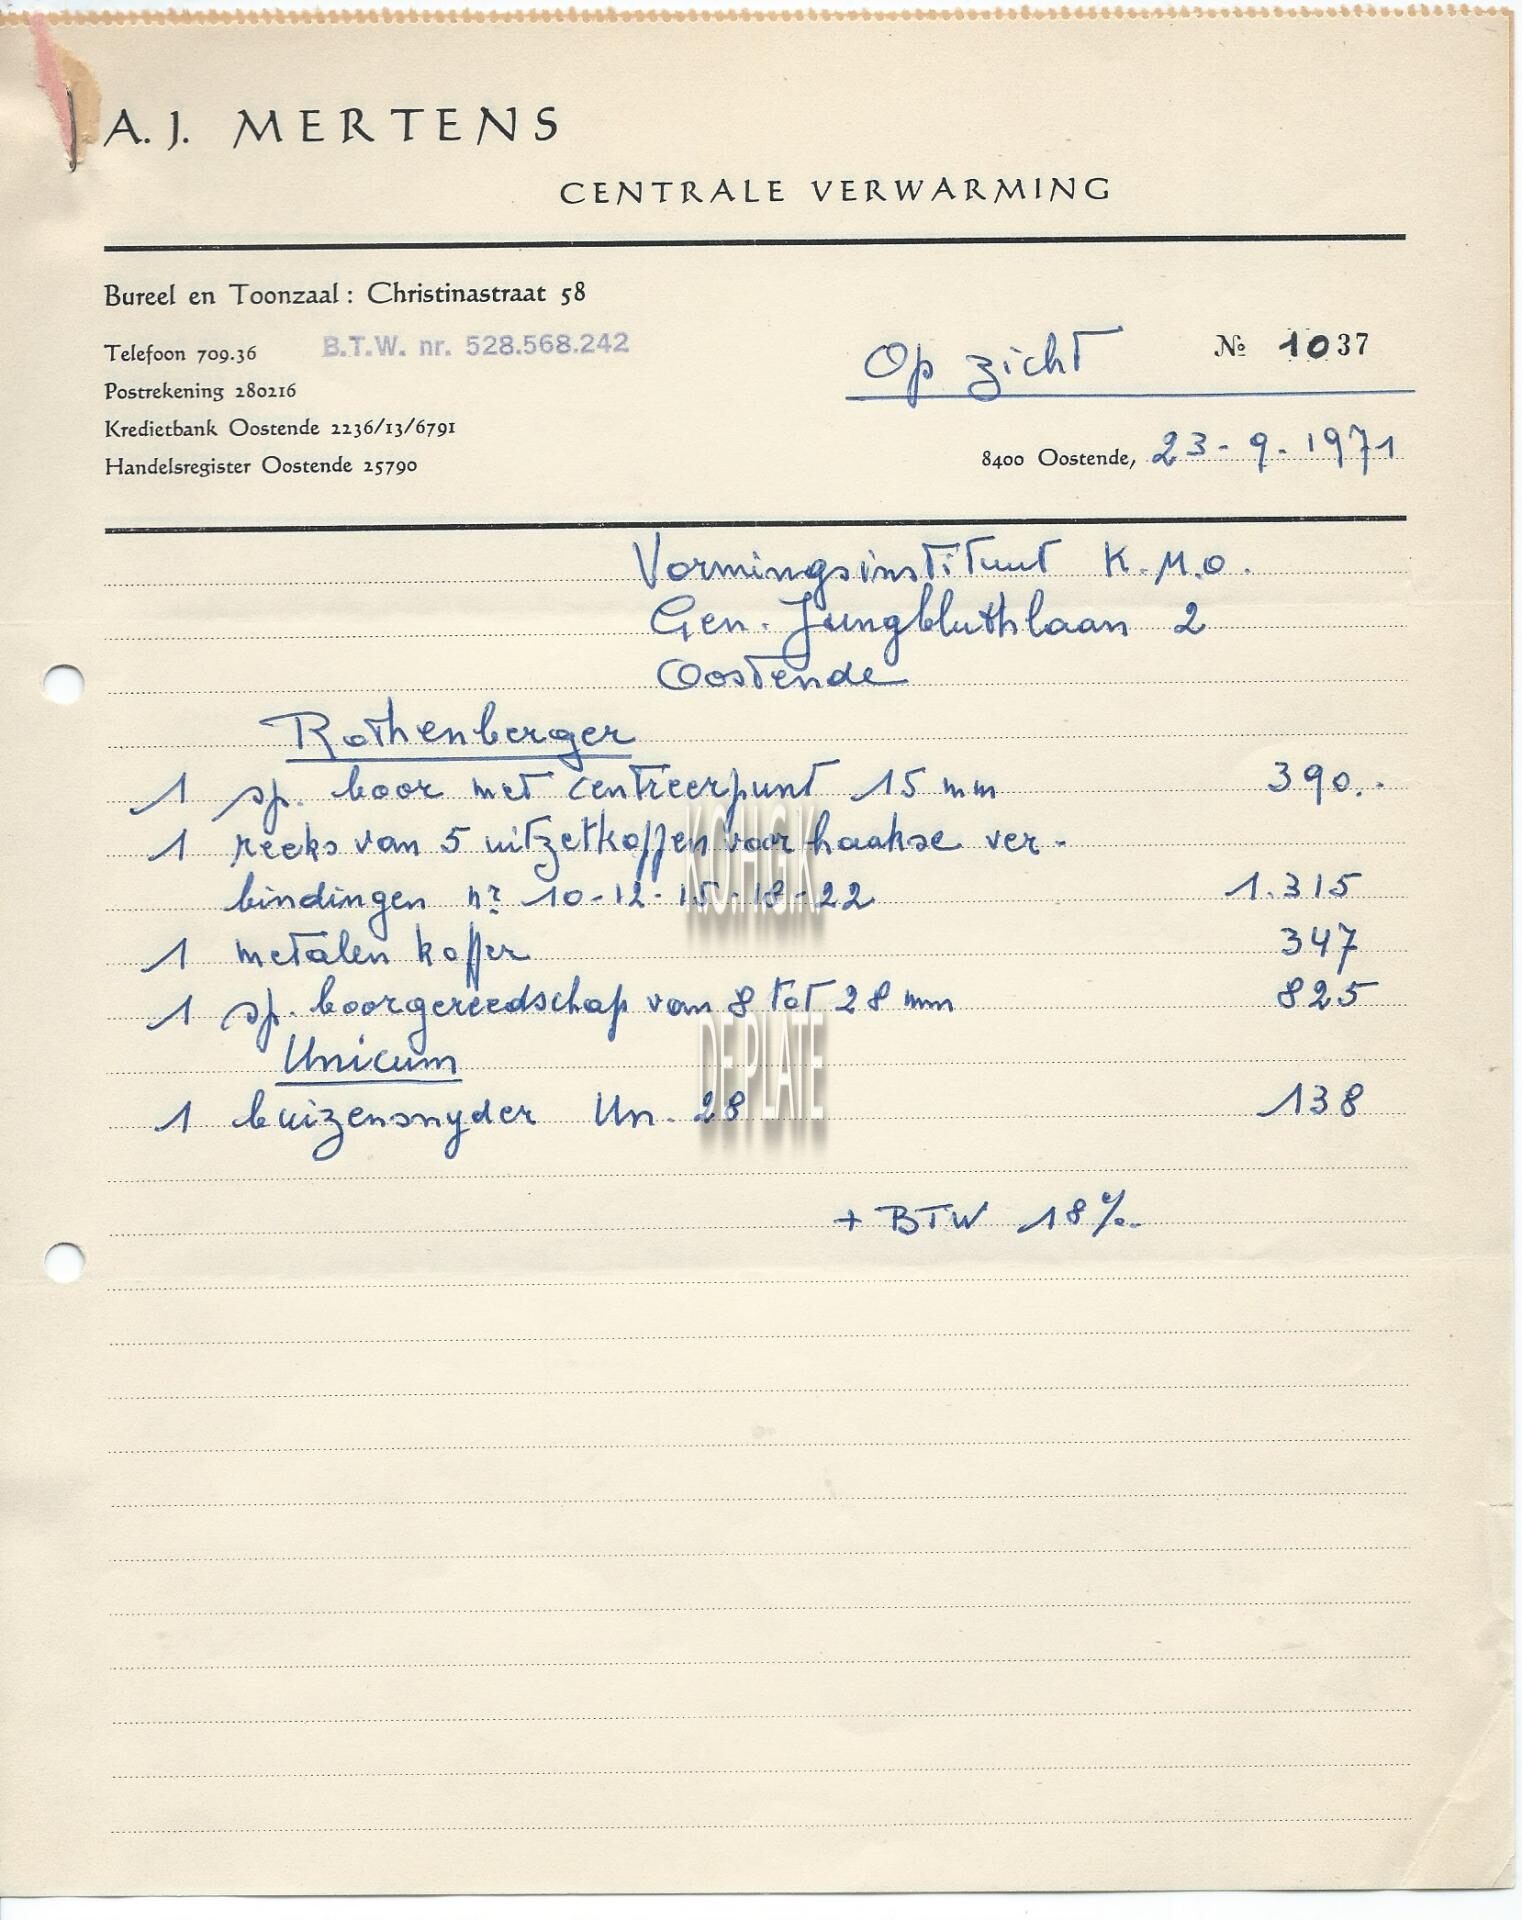 A. J. MERTENS
CENTRALE VERWARMING
Bureel en Toonzaal : Christinastraat 58
Telefoon 709.36 B.T.W. nr. 528.568.242
Postrekening 280216
Kredietbank Oostende 2236/13/6791
Handelsregister Oostende 25790
Op zicht № 1037
8400 Oostende, 23-9-1971
Vormingsinstituut K.M.O.
Gen. Jungbluthlaan 2
Oostende
Rothenberger
1 sp. boor met centreerpunt 15 mm 390.-
1 reeks van 5 uitzetkoppen voor haakse ver-
bindingen nr 10-12-15-18-22 1.315
1 metalen koffer 347
1 sp. boorgereedschap van 8 tot 28 mm 825
Unicum
1 buizensnyder Un. 28 138
+ BTW 18%
K.O.H.G.K.
DE PLATE